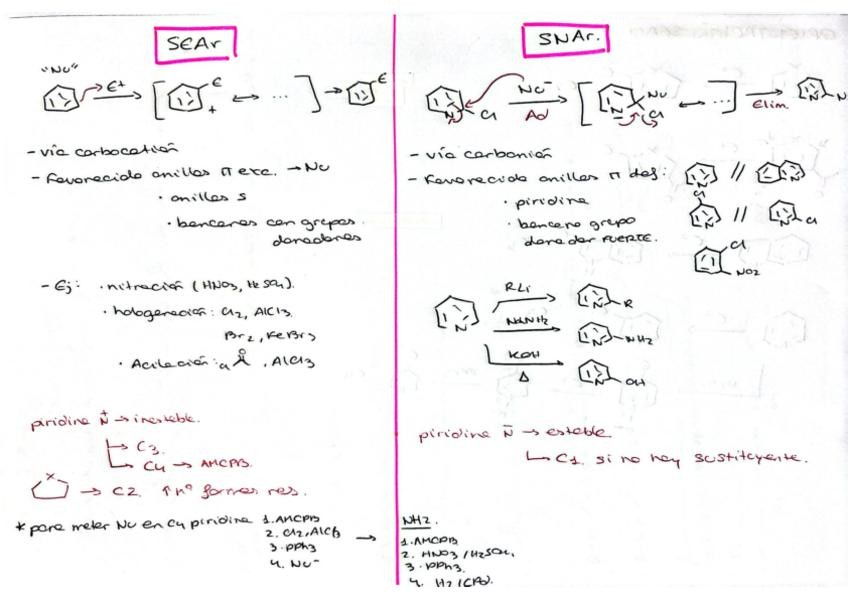 SEAr
"Nu"
E+
E
+
...
E
- vía carbocatión
- Favorecido anillos π exc. → Nu
· anillos 5
· bencenos con grupos
donadores
- Ej: · nitración (HNO3, H2SO4).
· halogenación: Cl2, AlCl3
Br2, FeBr3
· Acilación: Cl O , AlCl3
piridina N+ → inestable.
↳ C3
↳ C4 → AMCPB.
X → C2. ↑ nº formas res.
* para meter Nu en C4 piridina 1. AMCPB
2. Cl2, AlCl3 →
3. PPh3
4. Nu-
SNAr.
N Cl
Nu-
Ad
N Nu Cl
...
Elim.
N N
- vía carbanión
- Favorecido anillos π def: N // N
· piridina
Cl N // N Cl
· benceno grupo
donador FUERTE.
Cl
NO2
N
RLi
N R
NaNH2
N NH2
KOH
Δ
N OH
piridina N̄ → estable
↳ C1. si no hay sustituyente.
NH2.
1. AMCPB
2. HNO3 / H2SO4,
3. PPh3.
4. H2 (C/Pd).